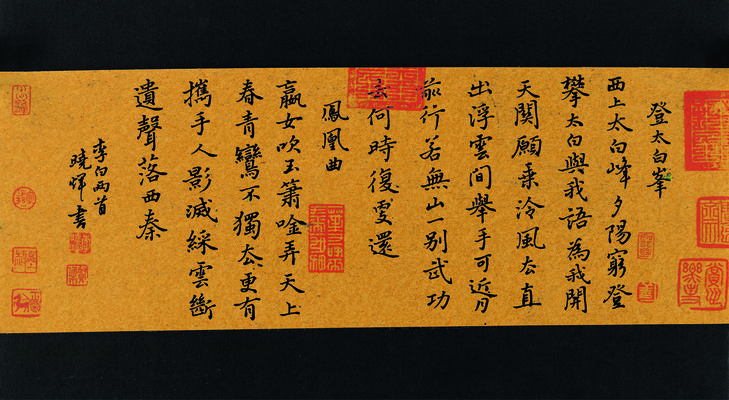 登太白峯
西上太白峰夕陽窮登
攀太白與我語為我開
天関願乗泠風去直
出浮雲間舉手可近月
前行若無山一別武功
去何時復更還
鳳凰曲
嬴女吹玉簫唫弄天上
春青鸞不獨去更有
攜手人影滅綵雲斷
遺聲落西秦
李白兩首
曉煇書